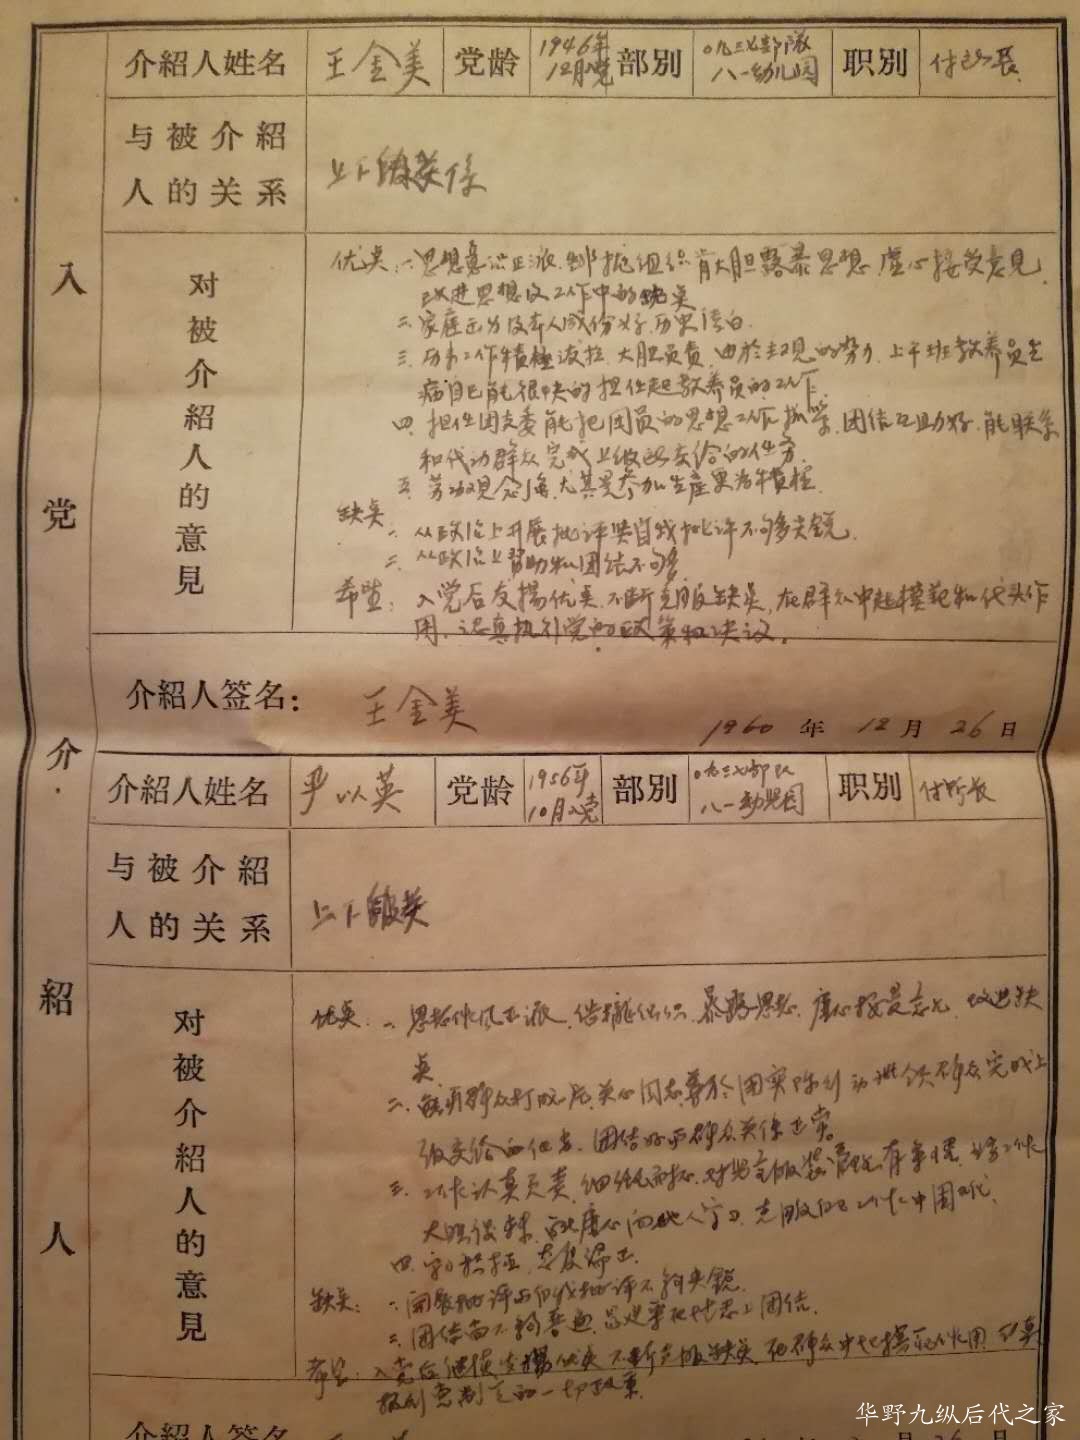 入党介紹人
介紹人姓名 王金美 党龄 1946年12月入党 部別 〇九三七部隊八一幼儿园 职別 付所長
与被介紹人的关系 上下级关係
对被介紹人的意見
优点:一.思想意识正派.靠拢组织肯大胆露暴思想.虚心接受意見.
改进思想及工作中的缺点
二.家庭出身及本人成份好.历史清白.
三.历来工作積極波拉.大胆负责.由於主观的努力.上午班教养员生
病自己能很快的担任起教养员的工作.
四.担任团支委能把团员的思想工作抓紧.团结互助好.能联系
和代动群众完成上级所交给的任务.
五.劳动观念强.尤其是参加生産更为積極.
缺点:一.从政治上开展批评与自我批评不够尖銳.
二.从政治上帮助和团结不够
希望:入党后发揚优点.不断克服缺点,在群众中起模范和代头作
用.认真执行党的政策和决议.
介紹人签名: 王金美
1960 年 12 月 26 日
介紹人姓名 尹以英 党龄 1956年10月入党 部別 〇九三七部队八一幼児园 职別 付所长
与被介紹人的关系 上下级关
对被介紹人的意見
优点:一.思想作风正派.靠攏组织.暴露思想.虚心接受意见.改进缺
点
二.能与群众打成一片.关心同志
级交给的任务.团结好与群众关係正常.
三.工作认真负责.细致耐心.
大胆
四.学习积极.态度端正.
缺点:一.開展批评与自我批评不夠尖銳.
二.团结面不夠普遍.
希望:入党后继续发揚优点不断克服缺点.在群众中起模范作用.认真
执行党制定的一切政策.
介紹人签名
26 日
华野九纵后代之家